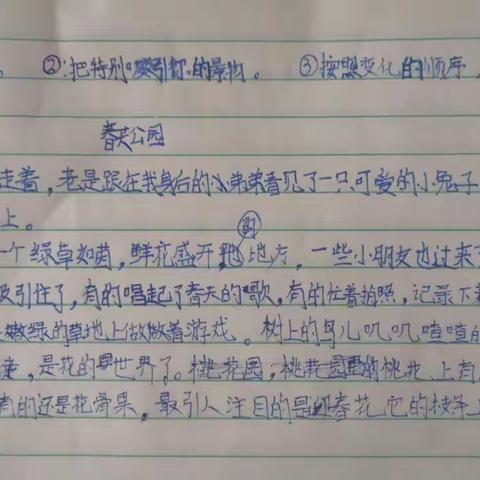 ②:把特别吸引你的景物。 ③按照变化的顺序
春天公园
走着,老是跟在我身后的小弟弟看见了一只可爱的小兔子
上。
一个绿草如茵,鲜花盛开的地方,一些小朋友也过来了
吸引住了,有的唱起了春天的歌,有的忙着拍照,记录下
嫩绿的草地上做做着游戏。树上的鸟儿叽叽喳喳的
来,是花的世界了。桃花园,桃花园里的桃花上有
有的还是花骨朵。最引人注目的是迎春花,它的枝